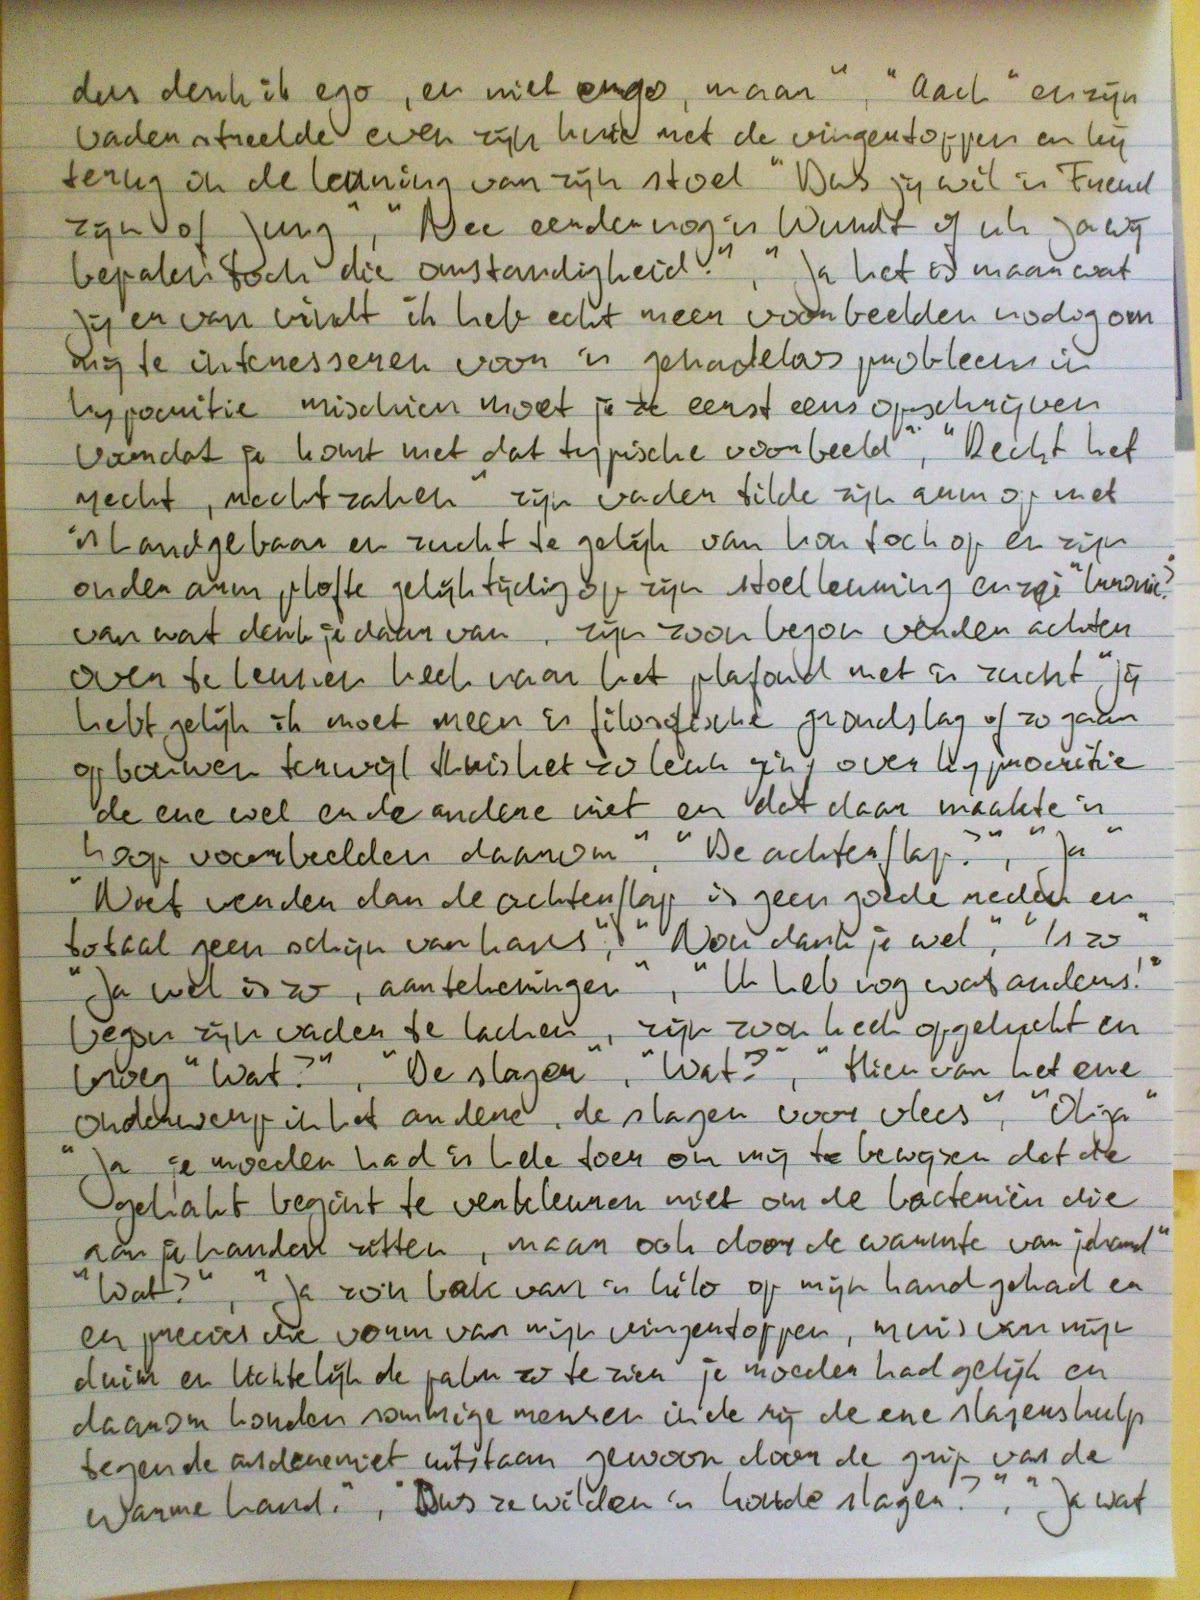 dus denk ik ego, en niet ergo, maar", "Aach" en zijn
vader streelde even zijn knie met de vingertoppen en hij
terug in de leuning van zijn stoel "Dus jij wil 'n Freud
zijn of Jung", "Nee eerder nog 'n Wundt of uh ja wij
bepalen toch die omstandigheid?", "Ja het is maar wat
jij er van vindt ik heb echt meer voorbeelden nodig om
mij te interesseren voor 'n probleem in
hypocritie mischien moet je ze eerst eens opschrijven
voordat je komt met dat typische voorbeeld", "Recht het
recht, rechtzaken" zijn vader tilde zijn arm op met
'n handgebaar en zucht te gelijk van hou toch op en zijn
onder arm plofte gelijktijdig op zijn stoelleuning en zei
van wat denk je daar van, zijn zoon begon verder achter
over te leunen keek naar het plafond met 'n zucht "jij
hebt gelijk ik moet meer 'n filosofische grondslag of zo gaan
opbouwen terwijl thuis het zo leuk ging over hypocritie
de ene wel en de andere niet en dat daar maakte 'n
hoop voorbeelden daarom", "De achterflap?", "Ja"
"Noet verder dan de achterflap is geen goede reden en
totaal geen schijn van kans", "Nou dank je wel", "Is zo"
"Ja wel is zo, aantekeningen", "Ik heb nog wat anders!"
begon zijn vader te lachen, zijn zoon keek opgelucht en
vroeg "Wat?", "De slager", "Wat?", "Hier van het ene
onderwerp in het andere, de slager voor vlees", "Okay"
"Ja je moeder had 'n hele toer om mij te bewijzen dat de
gehakt begint te verkleuren niet om de bacteriën die
aan je handen zitten, maar ook door de warmte van je hand"
"Wat?", "Ja zo'n bak van 'n kilo op mijn hand gehad en
en precies die vorm van mijn vingertoppen, muis van mijn
duim en lichtelijk de palm zo te zien je moeder had gelijk en
daarom konden sommige mensen in de rij de ene slagershulp
tegen de andere niet uitstaan gewoon door de grip van de
warme hand.", "Dus ze wilden 'n koude slager?", "Ja wat